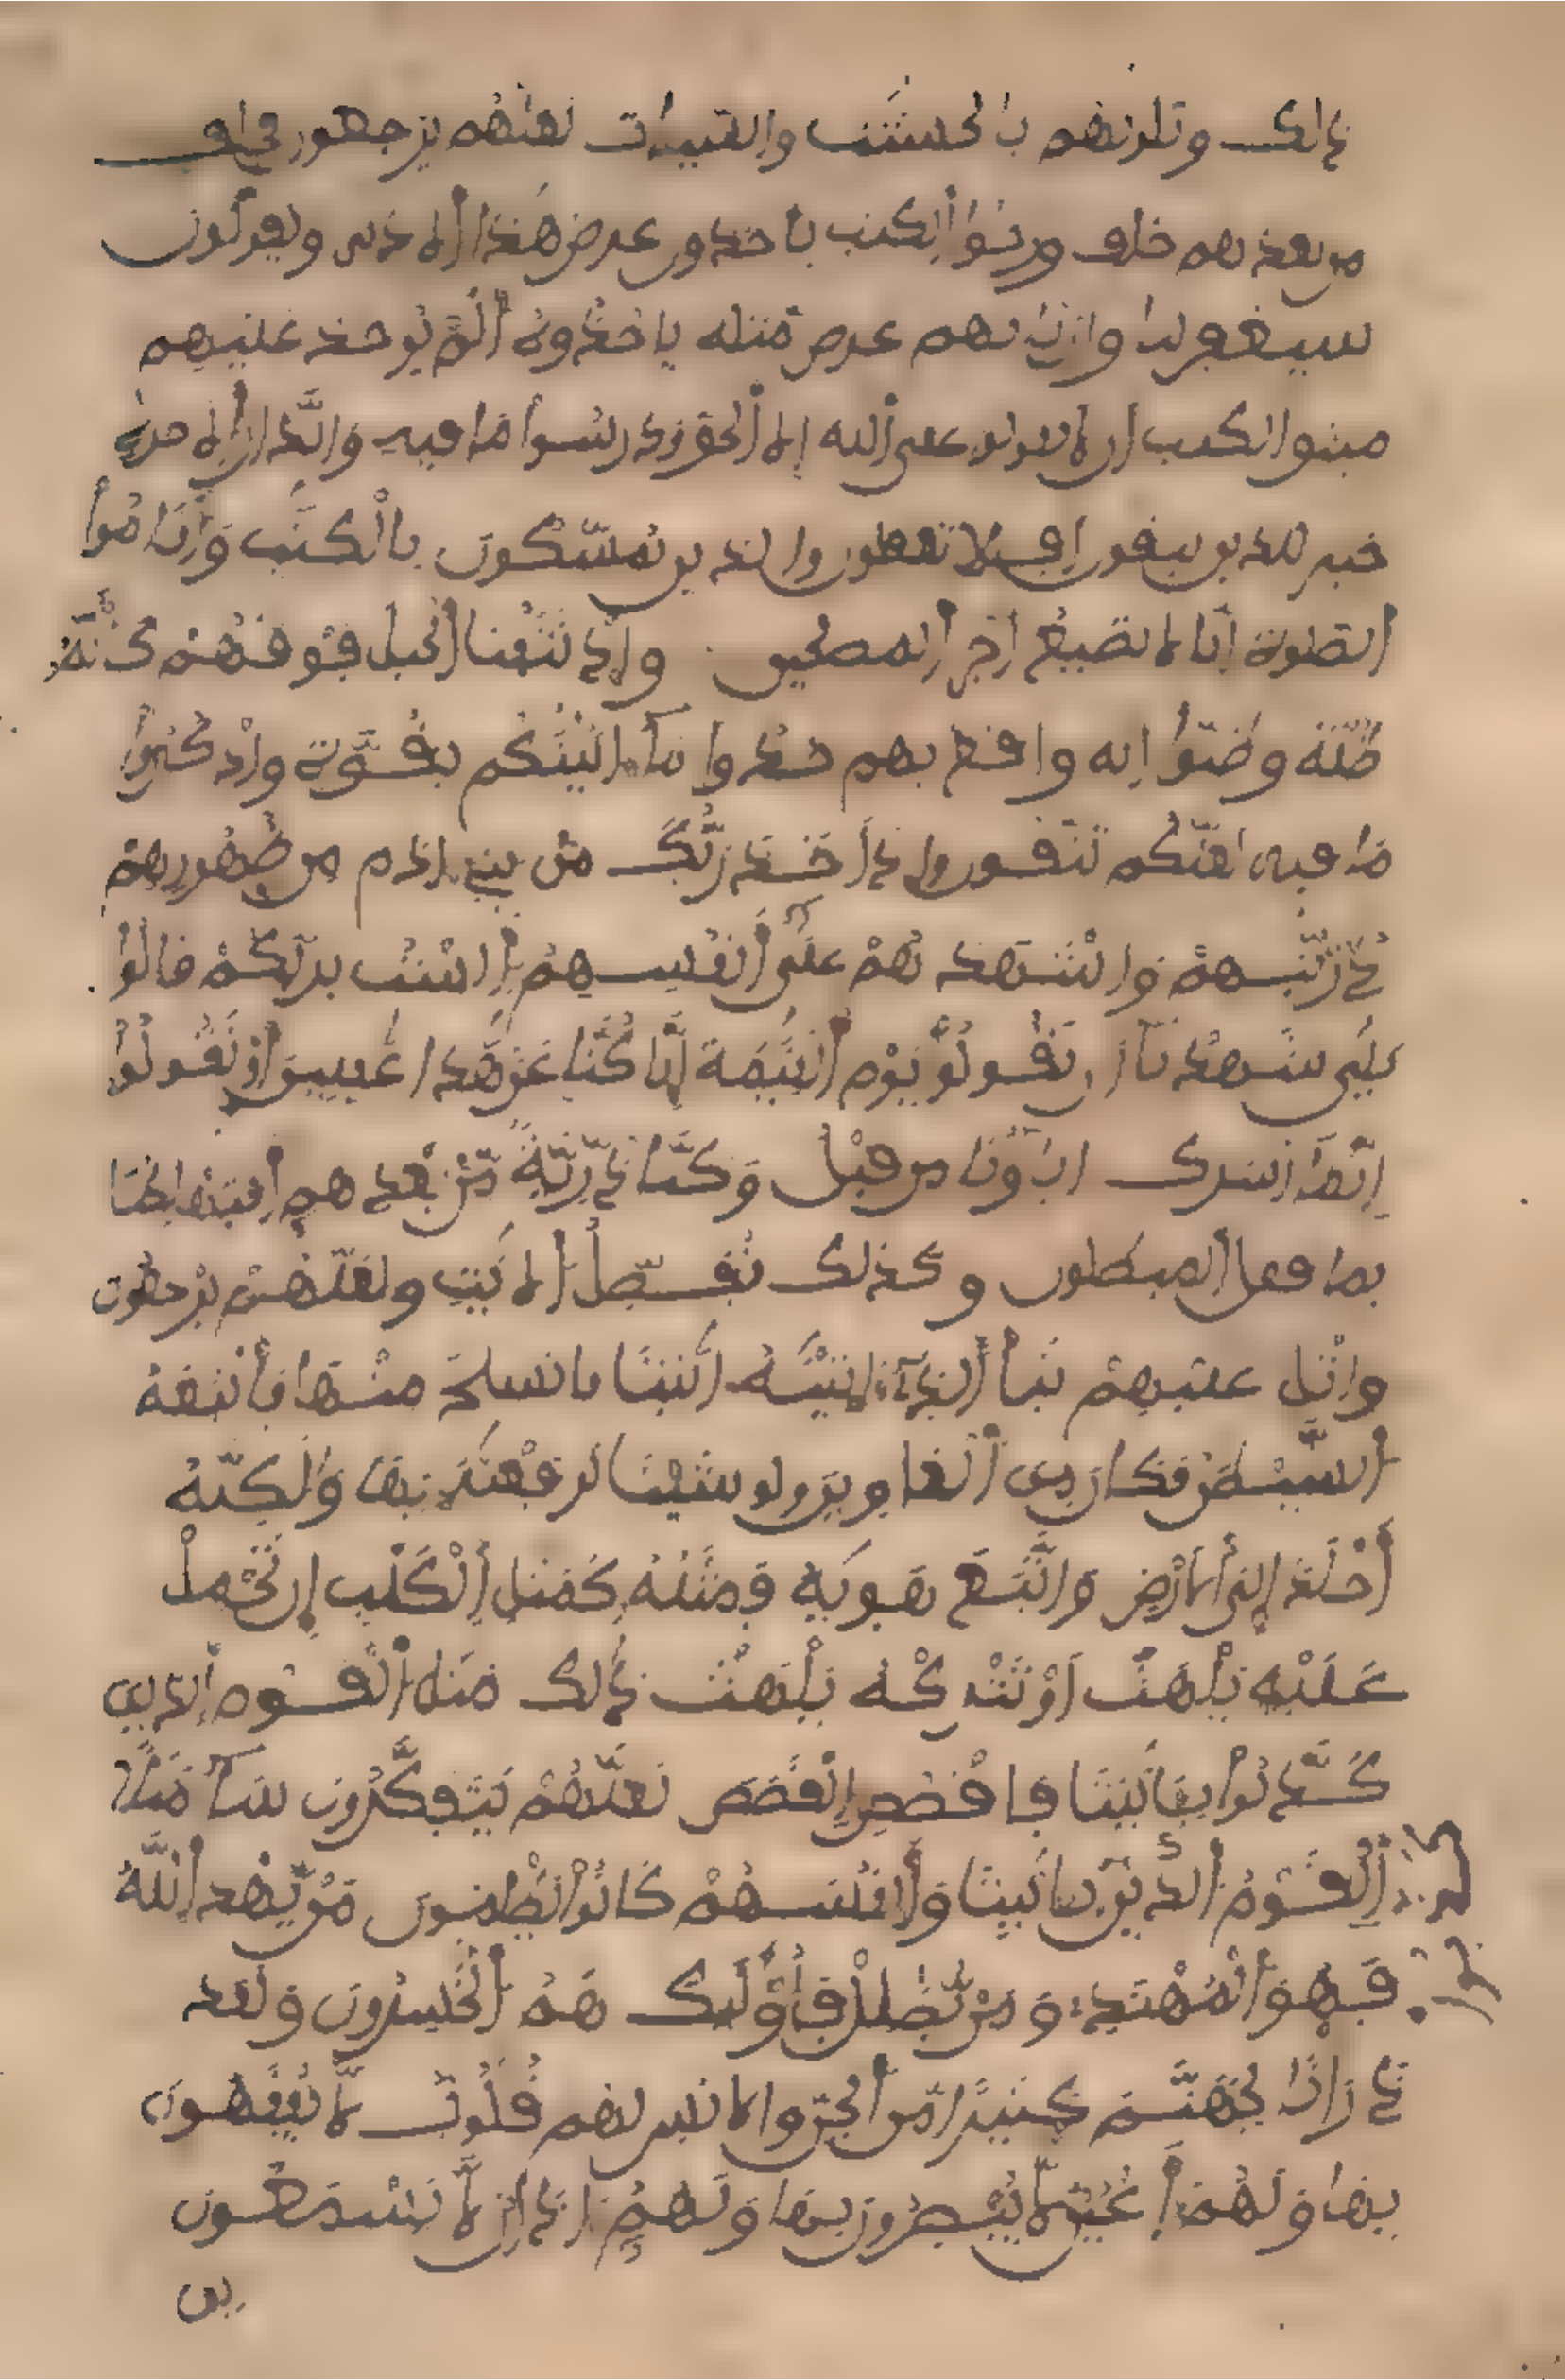 ذالك وبلونهم بالحسنت والسيات لعلهم يرجعون فخلف
من بعدهم خلف ورثوا الكتب ياخذون عرض هذا الادنى ويقولون
سيغفر لنا وان ياتهم عرض مثله ياخذوه ألم يوخذ عليهم
ميثق الكتب ان لا يقولوا على الله إلا الحق ودرسوا ما فيه والدار الاخرة
خير للذين يتقون افلا تعقلون والذين يمسكون بالكتب وأقاموا
الصلوة إنا لا نضيع أجر المصلحين وإذ نتقنا الجبل فوقهم كأنه
ظلة وظنوا انه واقع بهم خذوا ما اتينكم بقوة واذكروا
ما فيه لعلكم تتقون وإذ أخذ ربك من بني ادم من ظهورهم
ذريتهم وأشهدهم على أنفسهم ألست بربكم قالوا
بلى شهدنا أن تقولوا يوم القيمة إنا كنا عن هذا غفلين أو تقولوا
إنما أشرك اباؤنا من قبل وكنا ذرية من بعدهم أفتهلكنا
بما فعل المبطلون وكذلك نفصل الايت ولعلهم يرجعون
واتل عليهم نبأ الذي اتينه ايتنا فانسلخ منها فأتبعه
الشيطن فكان من الغاوين ولو شئنا لرفعنه بها ولكنه
أخلد إلى الارض واتبع هويه فمثله كمثل الكلب إن تحمل
عليه يلهث أو تتركه يلهث ذالك مثل القوم الذين
كذبوا بئايتنا فاقصص القصص لعلهم يتفكرون ساء مثلا
القوم الذين بايتنا وأنفسهم كانوا يظلمون من يهد الله
فهو المهتدي ومن يضلل فأولئك هم الخسرون ولقد
ذرأنا لجهنم كثيرا من الجن والانس لهم قلوب لا يفقهون
بها ولهم أعين لا يبصرون بها ولهم ءاذان لا يسمعون
بها